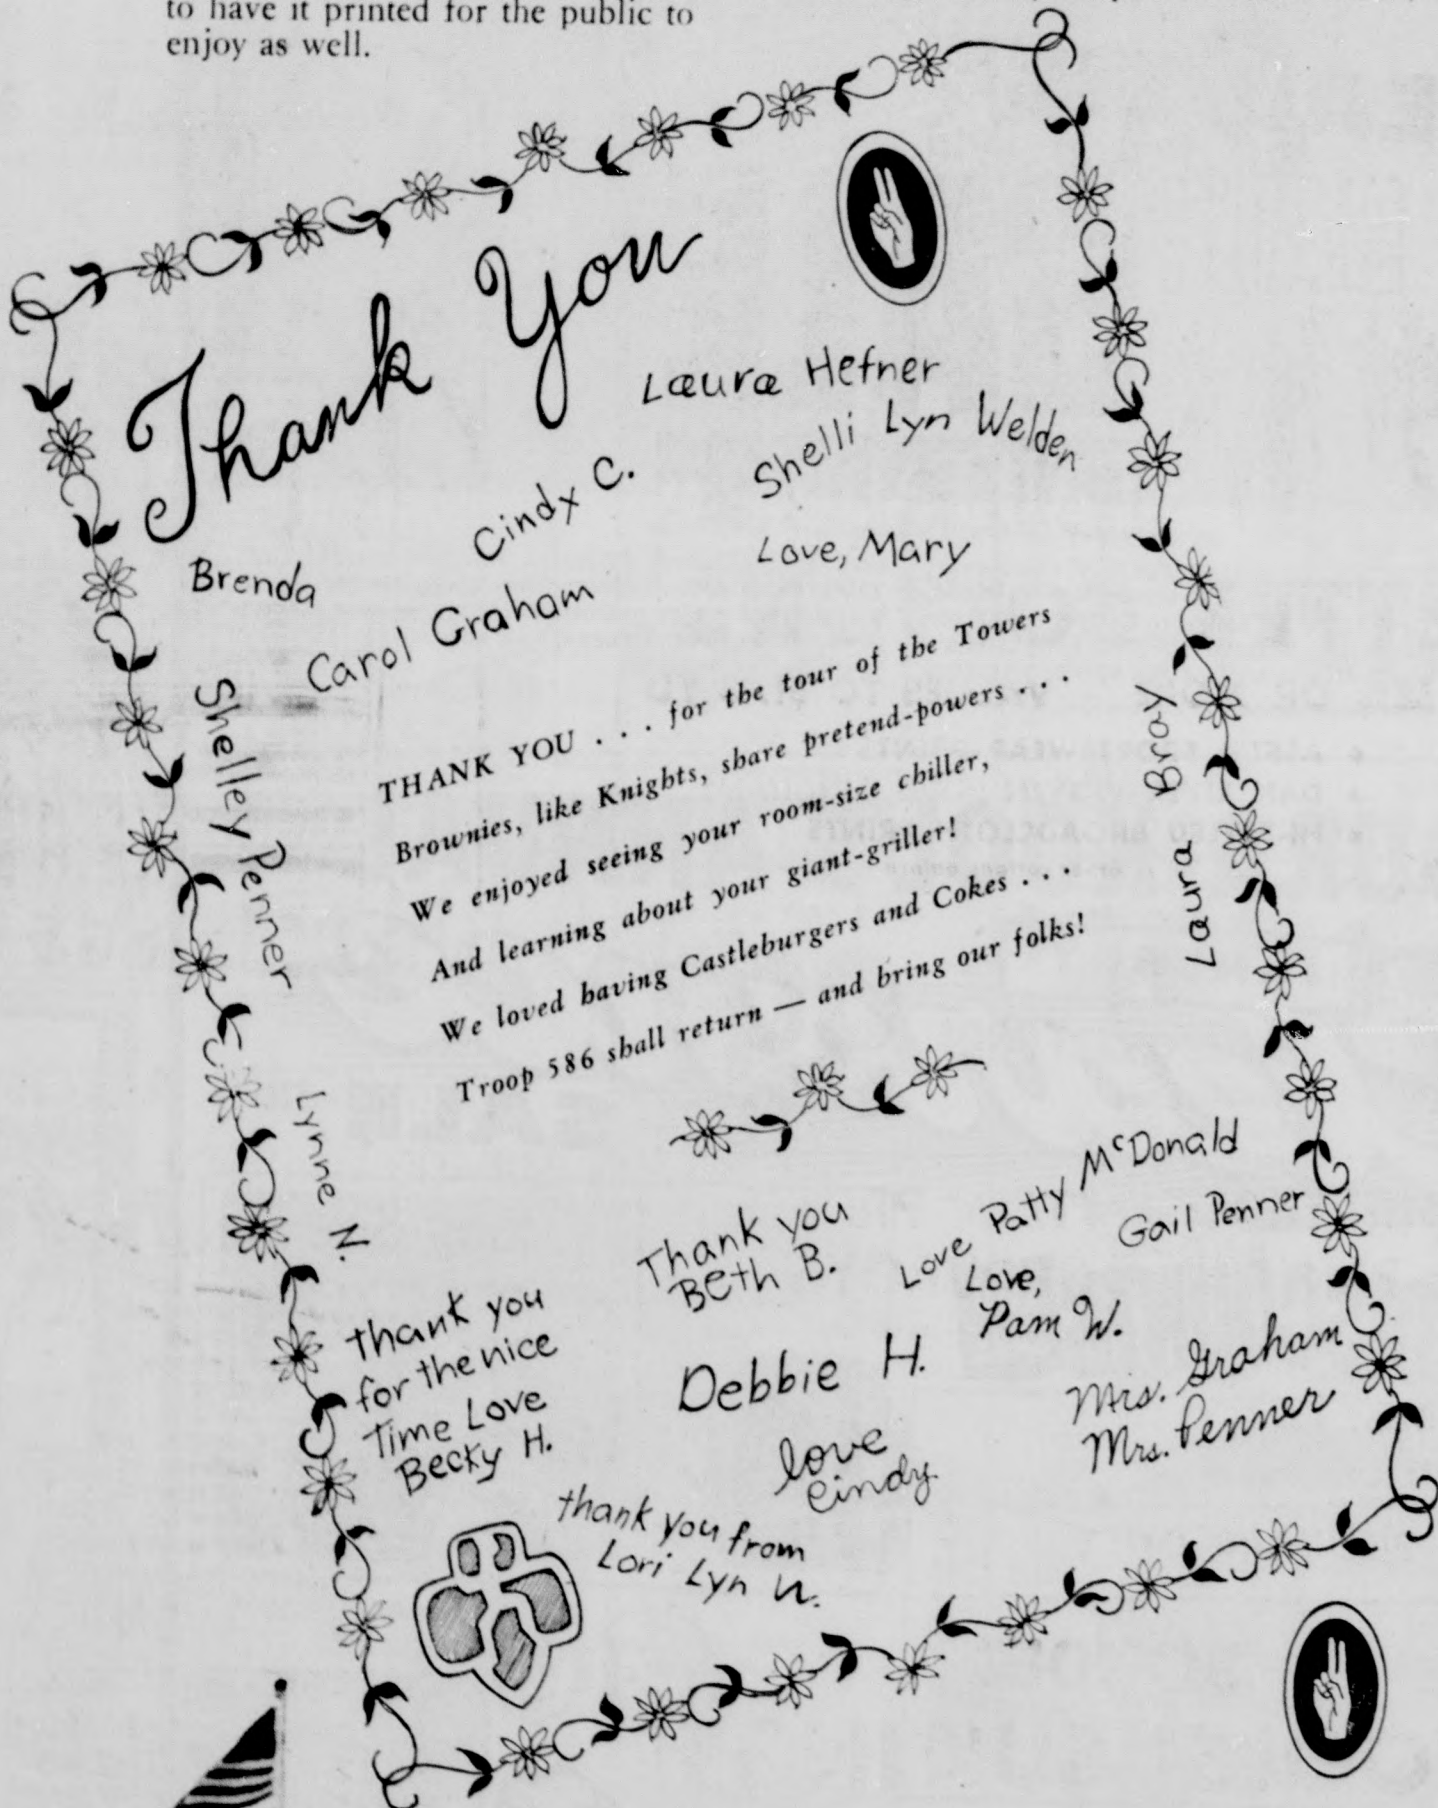 to have it printed for the public to
enjoy as well.
Thank You
Laura Hefner
Shelli Lyn Welden
Cindy C.
Love, Mary
Brenda
Carol Graham
Shelley Penner
THANK YOU . . . for the tour of the Towers
Brownies, like Knights, share pretend-powers . . .
We enjoyed seeing your room-size chiller,
And learning about your giant-griller!
We loved having Castleburgers and Cokes . . .
Troop 586 shall return — and bring our folks!
Laura Bray
Lynne N.
Thank you
Beth B.
Love Patty McDonald
Gail Penner
Love,
Pam W.
thank you
for the nice
Time Love
Becky H.
Debbie H.
Mrs. Graham
Mrs. Penner
love
Cindy
thank you from
Lori Lyn W.